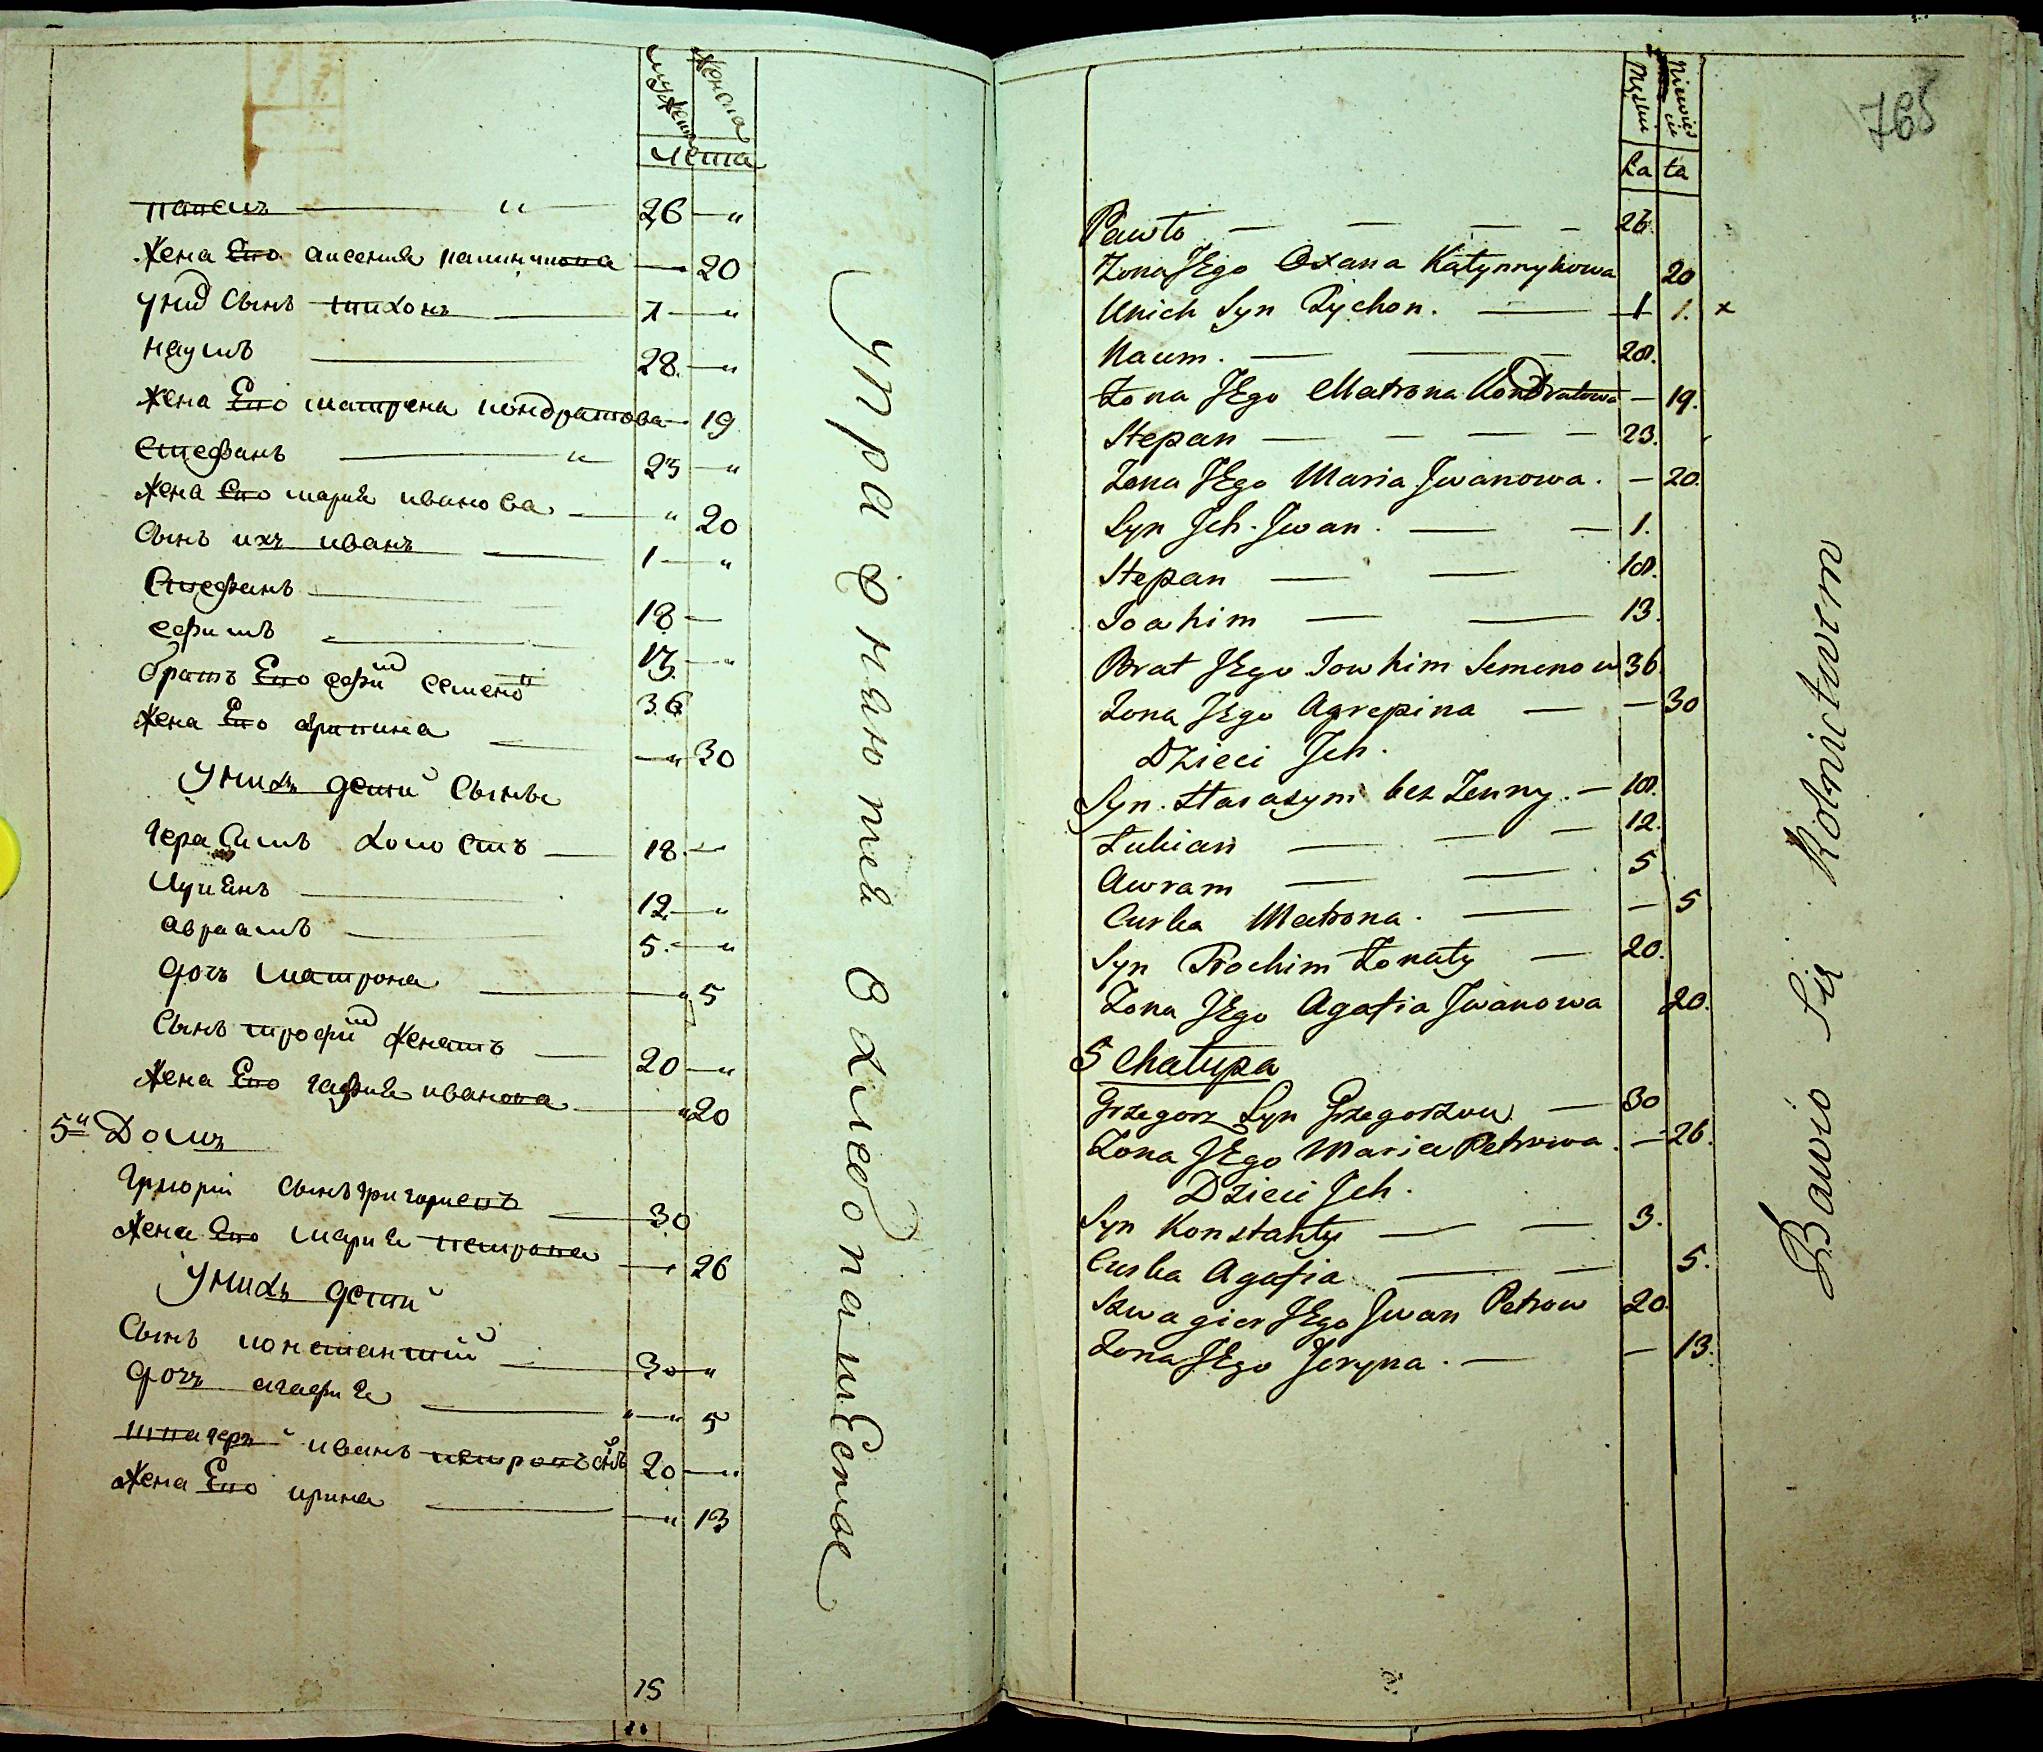 мужеска женска
лета
павелъ — " — 26 — "
жена Его аксения калинчкова — 20
у нид сынъ тихонъ — 1 — "
наумъ — 28 — "
жена Его матрена кондратова — 19
стефанъ — " — 23 — "
жена Его мария иванова — " 20
сынъ ихъ иванъ — 1 — "
стефанъ — 18 —
ефимъ — 13 — "
братъ Его ефим семено 36
жена Его агрипина — " 30
У нихъ дети сынъ
герасимъ холостъ — 18 —
лукиянъ — 12 — "
авраамъ — 5 — "
дочь матрона — " 5
сынъ трофим женатъ — 20 — "
жена Его гафия иванова — " 20
5й Домъ
григорий сынъ григориевъ — 30
жена Его мария петрова — 26
У нихъ дети
сынъ константий — 3 — "
дочь агафия — " — " 5
швагеръ иванъ петровъ снъ 20 — "
жена Его ирина — " 13
15
Упражняютей в хлебопашестве
765
Męskie Niewieście
La ta
Pawło — — — — 26.
Zona JEgo Oxana Kałynnykowa 20
Unich Syn Tychon. — 1 1. x
Naum. — — — 28.
Zona JEgo Matrona Kondratowa — 19.
Stepan — — — — 23.
Zona JEgo Maria Jwanowa. — 20.
Syn Jch. Jwan. — — 1.
Stepan — — 18.
Joahim — — 13.
Brat JEgo Jowhim Semenow 36.
Zona JEgo Agrepina — — 30
Dzieci Jch.
Syn. Harasym bez Zenny. — 18.
Łukian — — — 12.
Awram — — 5
Curka Matrona. — — 5
Syn Trochim Zonaty — 20.
Zona JEgo Agafia Jwanowa 20.
5 Chałupa
Grzegorz Syn Grzegorzow — 30
Zona JEgo Maria Petrowa. — 26.
Dzieci Jch.
Syn Konstanty — — 3.
Curka Agafia — — 5.
Szwagier JEgo Jwan Petrow 20.
Zona JEgo Jeryna. — — 13.
Bawio Się Rolnictwem